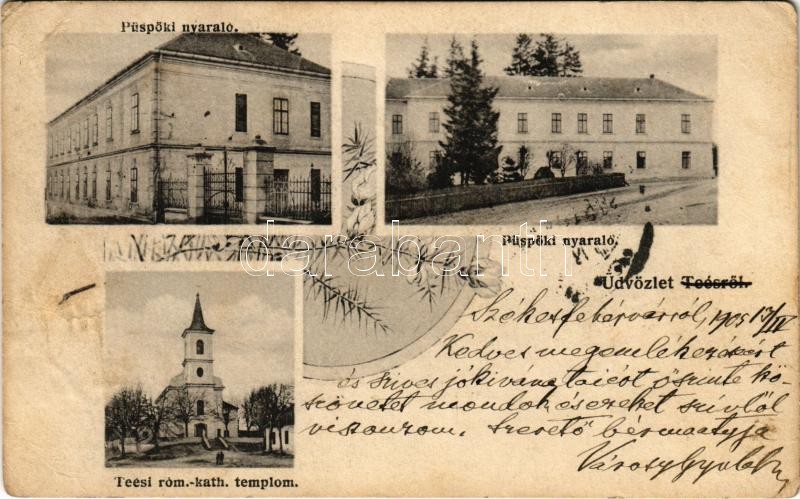 Püspöki nyaraló.
Püspöki nyaraló.
Üdvözlet Teésről.
Székesfehérvárról, 1905 13/IV
Kedves megemlékezésért
és szives jókivánataiért őszinte kö-
szönetet mondok és ezeket szívből
viszonzom. Szerető bérmaatyja
Városy Gyula
Teési róm.-kath. templom.
darabanth